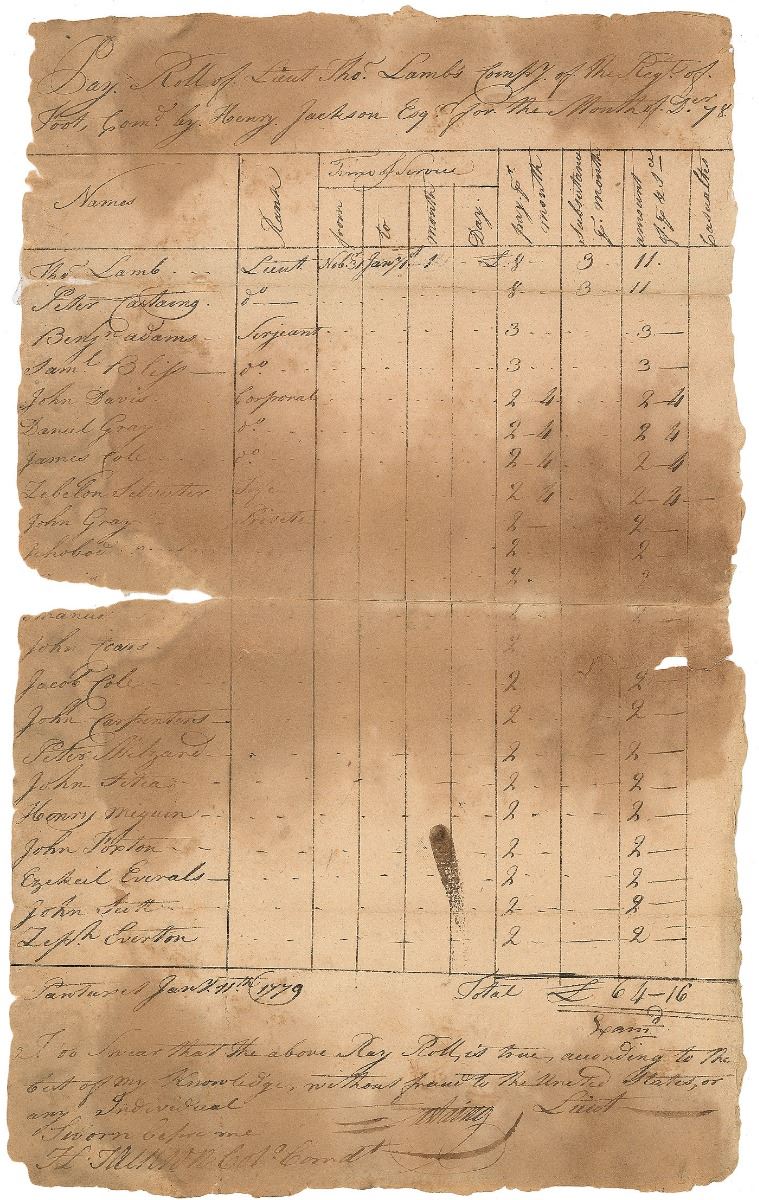 Pay Roll of Lieut Tho.s Lamb's Comp.y of the Reg.t of
Foot, Com.d by Henry Jackson Esq.r for the Month of D.er 78
Names Rank Time of Service pay pr month Subsistance pr month amount of p & s ce Casualties
from to month Day
Tho.s Lamb Lieut Nob.r 31 Jan.y 1st 1 £ 8 3 11
Peter Castaing do 8 3 11
Benj.n adams Serjeant 3 3
Sam.l Bliss do 3 3
John Davis Corporal 2 4 2 4
Daniel Gray do 2 4 2 4
James Cole do 2 4 2 4
Silvester 2 4 2 4
John Gray Privete 2 2
2 2
2 2
John
Jacob Cole 2 2
John Carpenters 2 2
Peter 2 2
John 2 2
Henry Meguin 2 2
John Foxton 2 2
Ezekeel Everals 2 2
John 2 2
Zeph.h Everton 2 2
Pautuxet Jan.y 11th 1779 Total £ 64-16
Exam.d
I do Swear that the above Pay Roll, is true, according to the
best off my Knowledge, without fraud to the United States, or
any Individual Castaing Lieut
Sworn before me
Col.o Comdt